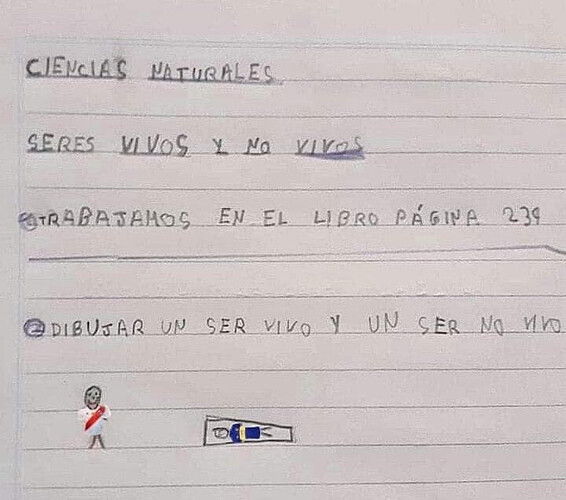 CIENCIAS NATURALES
SERES VIVOS Y NO VIVOS
① TRABAJAMOS EN EL LIBRO PÁGINA 239
② DIBUJAR UN SER VIVO Y UN SER NO VIVO